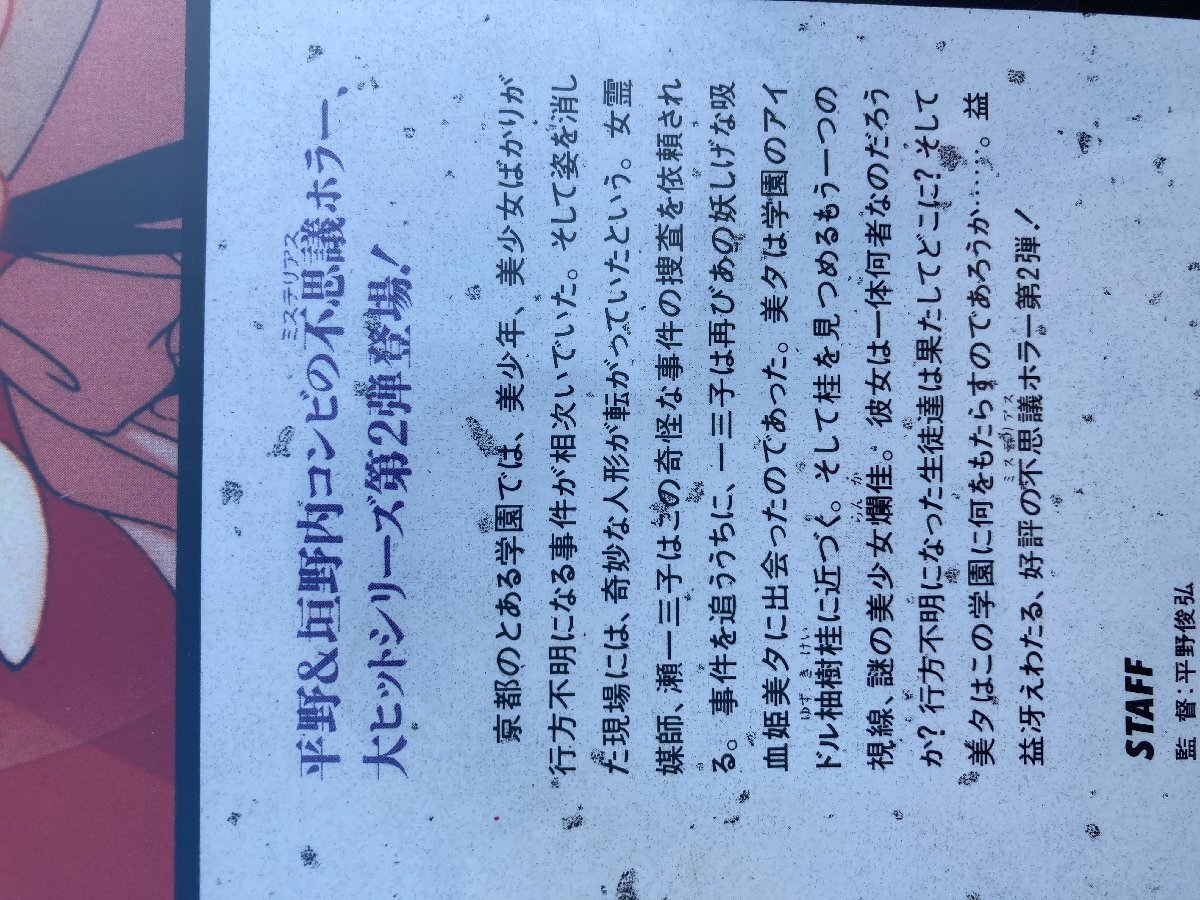 平野&垣野内コンビの不思議ホラー、
ミステリアス
大ヒットシリーズ第2弾登場!
京都のとある学園では、美少年、美少女ばかりが
行方不明になる事件が相次いでいた。そして姿を消し
た現場には、奇妙な人形が転がっていたという。女霊
媒師、瀬一三子はこの奇怪な事件の捜査を依頼され
る。事件を追ううちに、一三子は再びあの妖しげな吸
血姫美夕に出会ったのであった。美夕は学園のアイ
ドル柚樹桂に近づく。そして桂を見つめるもう一つの
ゆずきけい
視線、謎の美少女爛佳。彼女は一体何者なのだろう
らんか
か?行方不明になった生徒達は果たしてどこに?そして
美夕はこの学園に何をもたらすのであろうか……。益
益冴えわたる、好評の不思議ホラー第2弾!
ミステリアス
STAFF
監 督:平野俊弘